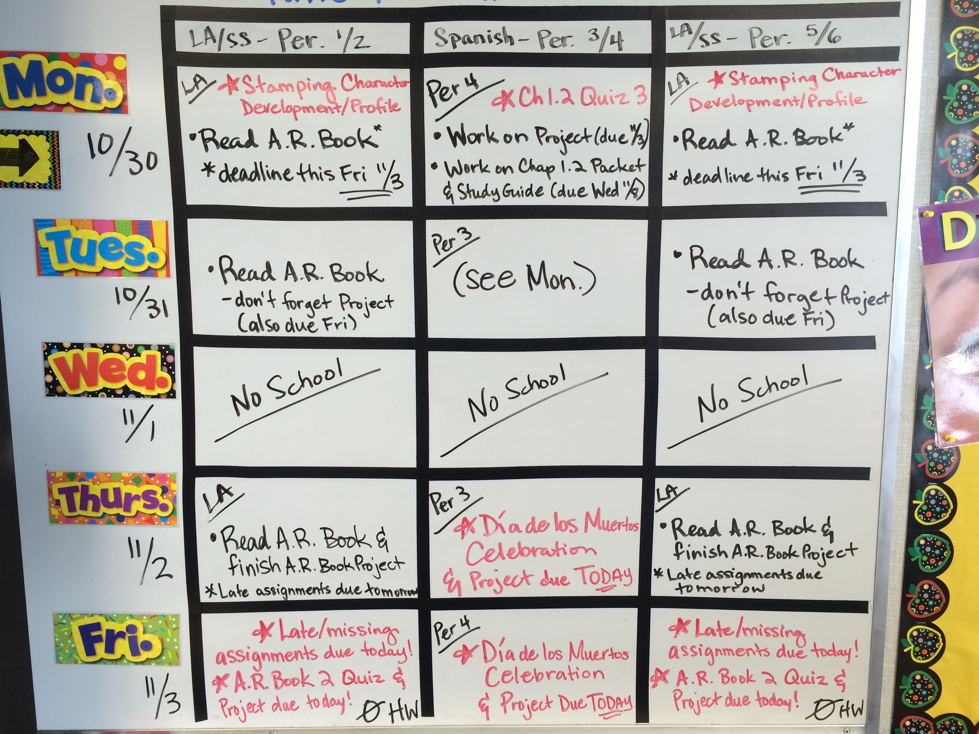 LA/SS - Per. 1/2
Spanish - Per. 3/4
LA/SS - Per. 5/6
Mon.
10/30
LA
* Stamping Character
Development/Profile
• Read A.R. Book*
* deadline this Fri 11/3
Per 4
* Ch 1.2 Quiz 3
• Work on Project (due 11/3)
• Work on Chap 1.2 Packet
& Study Guide (due Wed 11/8)
LA
* Stamping Character
Development/Profile
• Read A.R. Book*
* deadline this Fri 11/3
Tues.
10/31
• Read A.R. Book
- don't forget Project
(also due Fri)
Per 3
(see Mon.)
• Read A.R. Book
- don't forget Project
(also due Fri)
Wed.
11/1
No School
No School
No School
Thurs.
11/2
LA
• Read A.R. Book &
finish A.R. Book Project
* Late assignments due tomorrow
Per 3
* Día de los Muertos
Celebration
& Project due TODAY
LA
• Read A.R. Book &
finish A.R. Book Project
* Late assignments due
tomorrow
Fri.
11/3
* Late/missing
assignments due today!
* A.R. Book 2 Quiz &
Project due today!
Ø HW
Per 4
* Día de los Muertos
Celebration
& Project Due TODAY
* Late/missing
assignments due today!
* A.R. Book 2 Quiz &
Project due today!
Ø HW
D